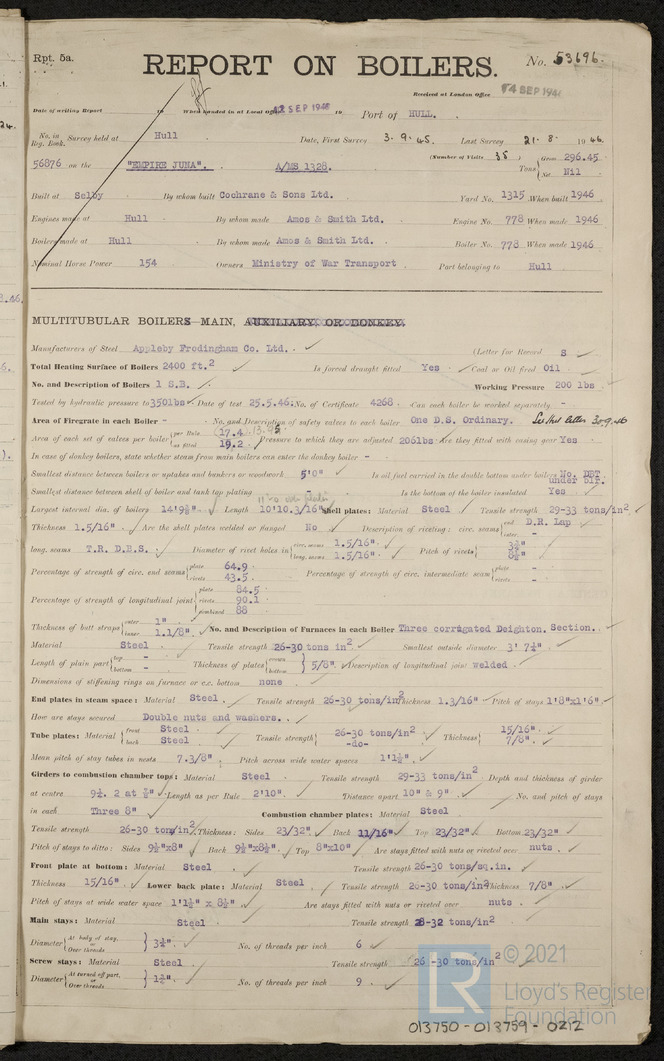 Rpt. 5a.
REPORT ON BOILERS.
No. 53696.
Received at London Office 14 SEP 1946
Date of writing Report 19 When handed in at Local Office 12 SEP 1946 19 Port of HULL.
No. in Reg. Book. Survey held at Hull Date, First Survey 3.9.45. Last Survey 21.8.1946
(Number of Visits 35)
56876 on the "EMPIRE JUNA". A/MS 1328. Tons { Gross 296.45 Net Nil
Built at Selby By whom built Cochrane & Sons Ltd. Yard No. 1315 When built 1946
Engines made at Hull By whom made Amos & Smith Ltd. Engine No. 778 When made 1946
Boilers made at Hull By whom made Amos & Smith Ltd. Boiler No. 778 When made 1946
Nominal Horse Power 154 Owners Ministry of War Transport Port belonging to Hull
MULTITUBULAR BOILERS MAIN, AUXILIARY, OR DONKEY.
Manufacturers of Steel Appleby Frodingham Co. Ltd. (Letter for Record S
Total Heating Surface of Boilers 2400 ft.2 Is forced draught fitted Yes Coal or Oil fired Oil
No. and Description of Boilers 1 S.B. Working Pressure 200 lbs
Tested by hydraulic pressure to 350lbs Date of test 25.5.46. No. of Certificate 4268 Can each boiler be worked separately -
Area of Firegrate in each Boiler - No. and Description of safety valves to each boiler One D.S. Ordinary. See their letter 30.9.46
Area of each set of valves per boiler { per Rule 17.4 13.95 as fitted 19.2 Pressure to which they are adjusted 206lbs Are they fitted with easing gear Yes
In case of donkey boilers, state whether steam from main boilers can enter the donkey boiler -
Smallest distance between boilers or uptakes and bunkers or woodwork 5'0" Is oil fuel carried in the double bottom under boilers No. DBT under blr.
Smallest distance between shell of boiler and tank top plating Is the bottom of the boiler insulated Yes
Largest internal dia. of boilers 14'9⅝" Length 10'10.3/16" Shell plates: Material Steel Tensile strength 29-33 tons/in2
Thickness 1.5/16" Are the shell plates welded or flanged No Description of riveting: circ. seams { end D.R. Lap inter. -
long. seams T.R. D.B.S. Diameter of rivet holes in { circ. seams 1.5/16" long. seams 1.5/16" Pitch of rivets {
Percentage of strength of circ. end seams { plate 64.9 rivets 43.5 Percentage of strength of circ. intermediate seam { plate - rivets -
Percentage of strength of longitudinal joint { plate 84.5 rivets 90.1 combined 88
Thickness of butt straps { outer 1" inner 1.1/8" No. and Description of Furnaces in each Boiler Three corrugated Deighton. Section.
Material Steel Tensile strength 26-30 tons in2 Smallest outside diameter 3' 7¼"
Length of plain part { top - bottom - Thickness of plates { crown bottom } 5/8" Description of longitudinal joint welded
Dimensions of stiffening rings on furnace or c.c. bottom none
End plates in steam space: Material Steel Tensile strength 26-30 tons/in2 Thickness 1.3/16" Pitch of stays 1'8"x1'6"
How are stays secured Double nuts and washers.
Tube plates: Material { front Steel back Steel Tensile strength { 26-30 tons/in2 -do- Thickness { 15/16" 7/8"
Mean pitch of stay tubes in nests 7.3/8" Pitch across wide water spaces 1'1½"
Girders to combustion chamber tops: Material Steel Tensile strength 29-33 tons/in2 Depth and thickness of girder
at centre 9¼. 2 at ¾" Length as per Rule 2'10". Distance apart 10" & 9" No. and pitch of stays
in each Three 8" Combustion chamber plates: Material Steel
Tensile strength 26-30 tons/in2 Thickness: Sides 23/32" Back 11/16" Top 23/32" Bottom 23/32"
Pitch of stays to ditto: Sides 9½"x8" Back 9½"x8½" Top 8"x10" Are stays fitted with nuts or riveted over nuts
Front plate at bottom: Material Steel Tensile strength 26-30 tons/sq.in.
Thickness 15/16" Lower back plate: Material Steel Tensile strength 26-30 tons/in2 Thickness 7/8"
Pitch of stays at wide water space 1'1½" x 8½" Are stays fitted with nuts or riveted over nuts
Main stays: Material Steel Tensile strength 28-32 tons/in2
Diameter { At body of stay, or Over threads } 3¼" No. of threads per inch 6
Screw stays: Material Steel Tensile strength 26-30 tons/in2
Diameter { At turned off part, or Over threads } 1¾" No. of threads per inch 9
LR © 2021
Lloyd's Register
Foundation
013750-013759-0212